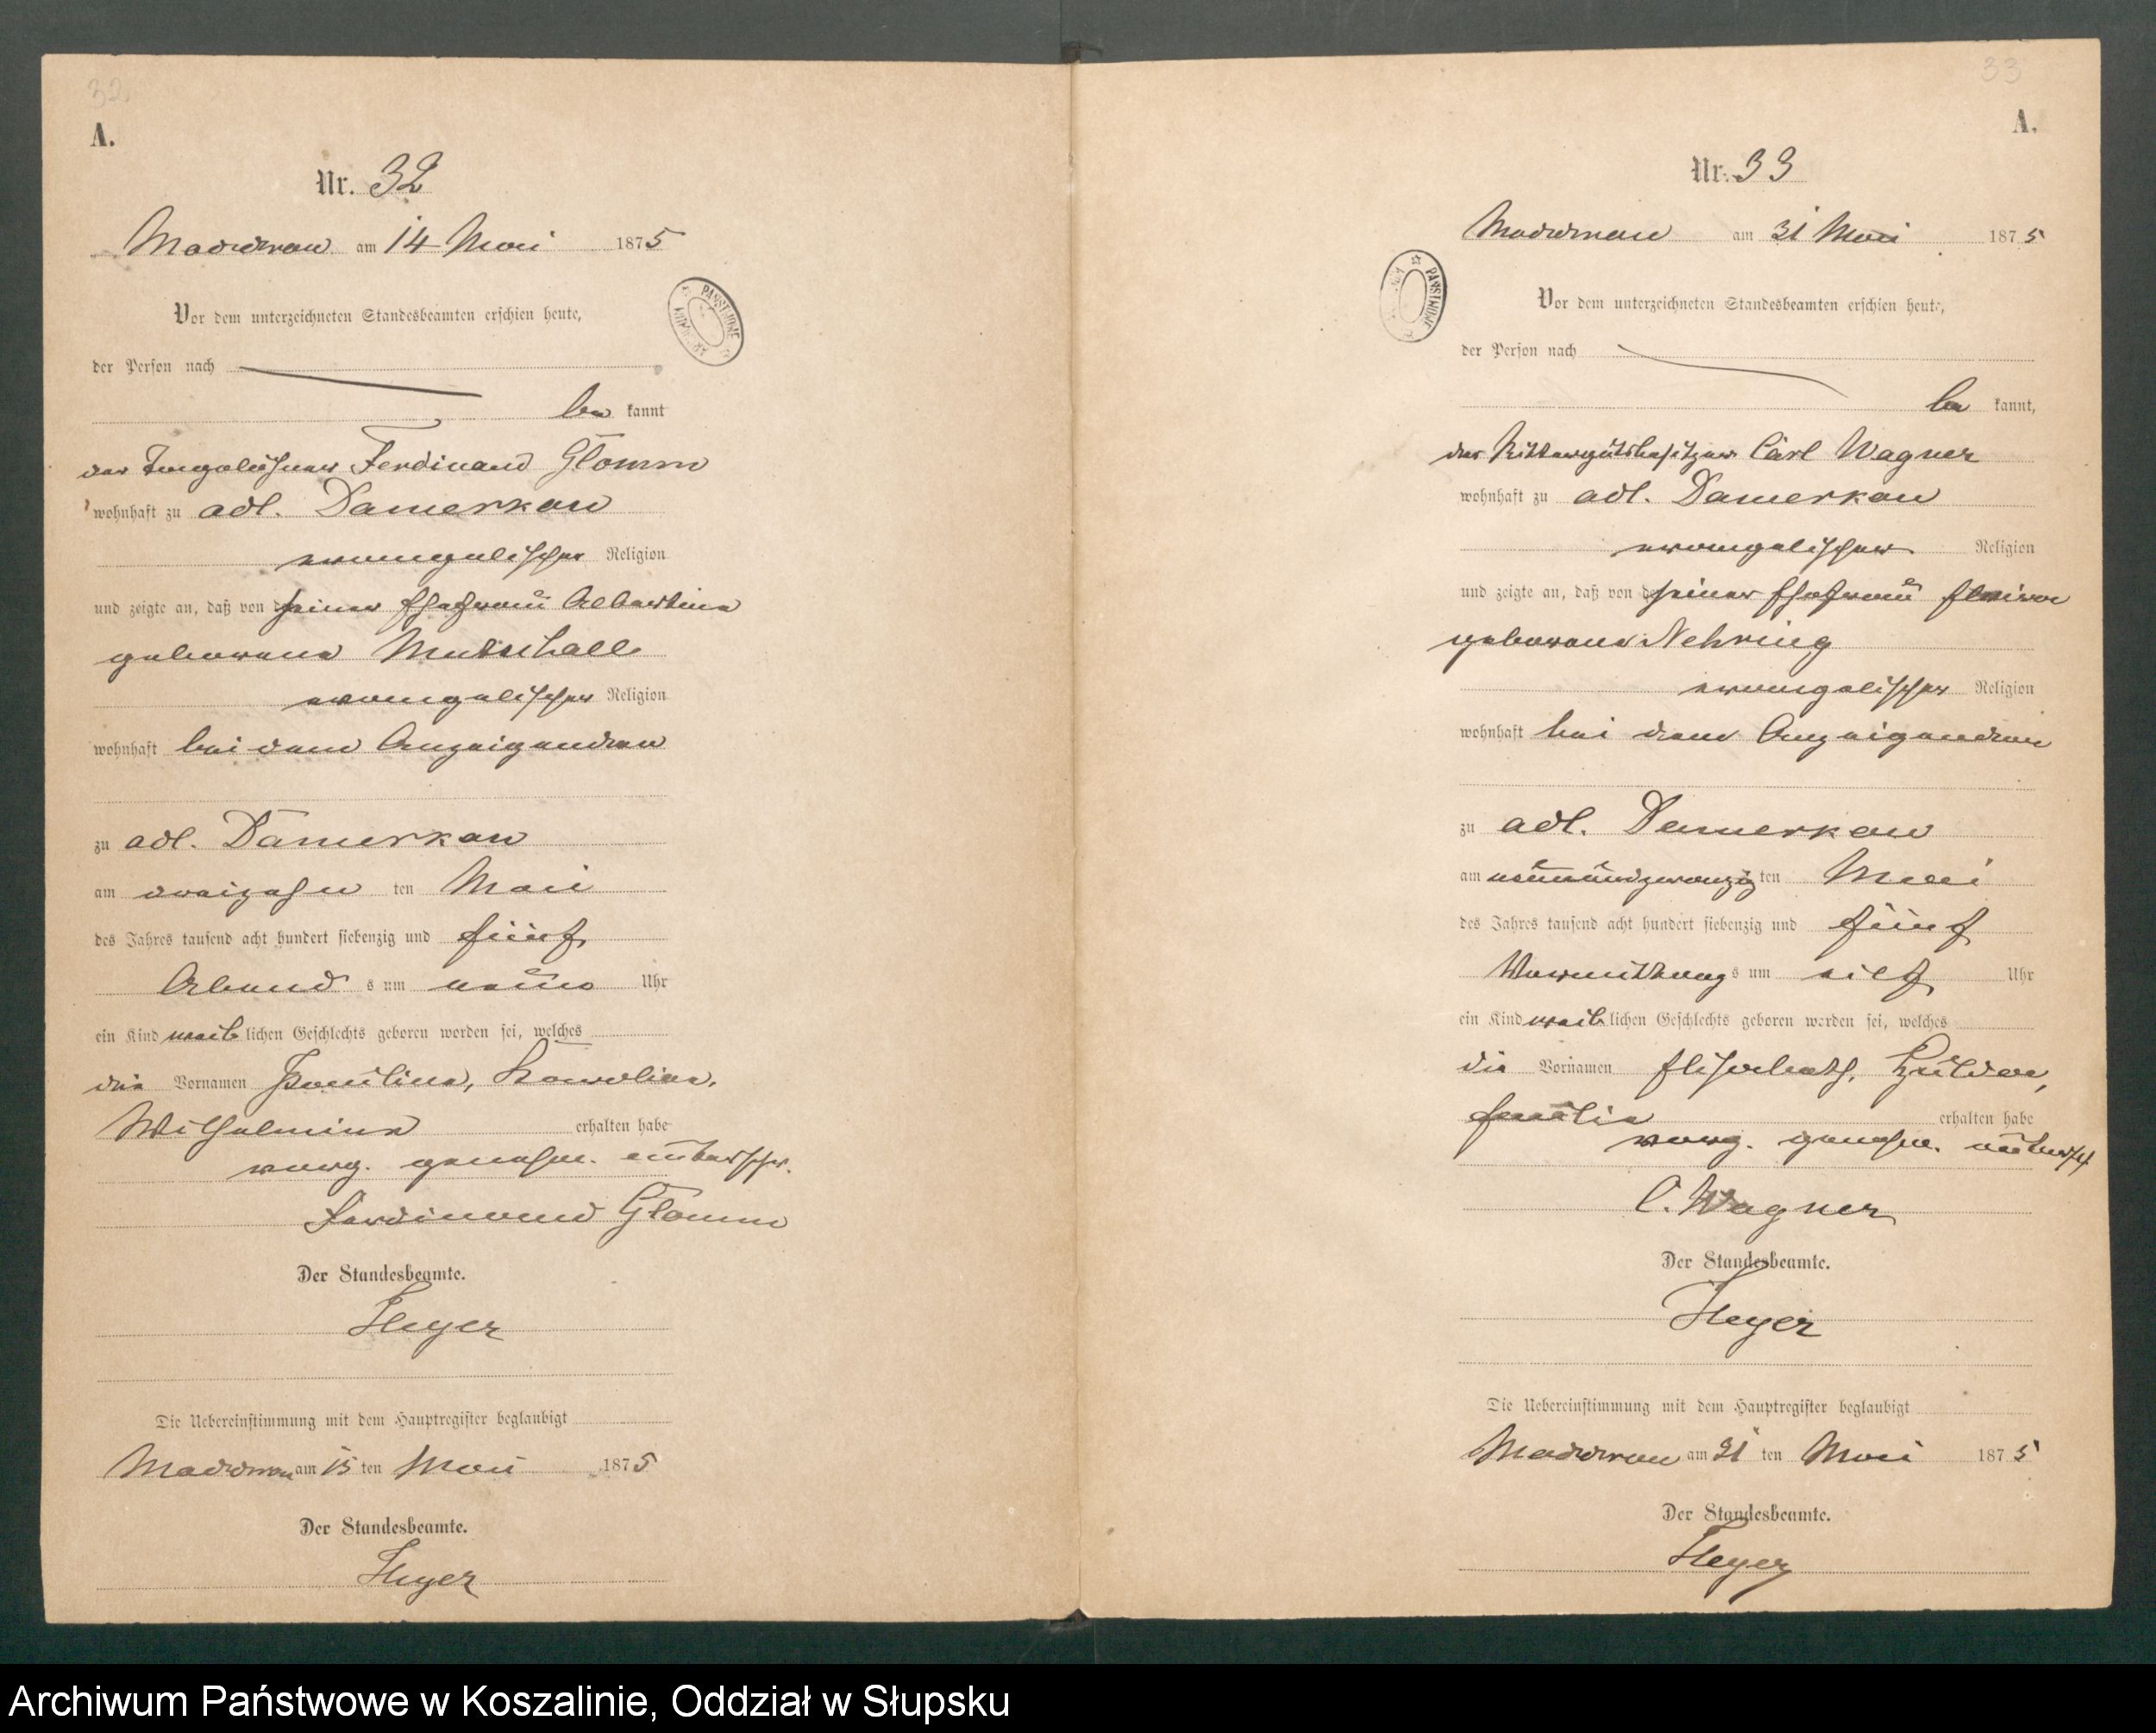 32
A.
Nr. 32
Maddrow am 14 Mai 1875
Vor dem unterzeichneten Standesbeamten erschien heute,
der Person nach
be kannt
der Tagelöhner Ferdinand Glomm
wohnhaft zu adl. Damerkau
evangelischer Religion
und zeigte an, daß von seiner Ehefrau Albertine
geborene
evangelischer Religion
wohnhaft bei dem Anzeigenden
zu adl. Damerkau
am dreizehn ten Mai
des Jahres tausend acht hundert siebenzig und fünf
Abend s um neun Uhr
ein Kind weib lichen Geschlechts geboren worden sei, welches
die Vornamen Pauline, Karoline,
Wilhelmine erhalten habe
vorg. genehm. unterschr.
Ferdinand Glomm
Der Standesbeamte.
Heyer
Die Uebereinstimmung mit dem Hauptregister beglaubigt
Maddrow am 15 ten Mai 1875
Der Standesbeamte.
Heyer
33
A.
Nr. 33
Maddrow am 31 Mai 1875
PAŃSTWOWE
Vor dem unterzeichneten Standesbeamten erschien heute,
der Person nach
be kannt,
der Rittergutsbesitzer Carl Wagner
wohnhaft zu adl. Damerkau
evangelischer Religion
und zeigte an, daß von seiner Ehefrau
geborene Nehring
evangelischer Religion
wohnhaft bei dem Anzeigenden
zu adl. Damerkau
am neunundzwanzig ten Mai
des Jahres tausend acht hundert siebenzig und fünf
Vormittag s um elf Uhr
ein Kind weib lichen Geschlechts geboren worden sei, welches
die Vornamen Elisabeth, Hulda,
Emilie erhalten habe
vorg. genehm. unterschr
C. Wagner
Der Standesbeamte.
Heyer
Die Uebereinstimmung mit dem Hauptregister beglaubigt
Maddrow am 31 ten Mai 1875
Der Standesbeamte.
Heyer
Archiwum Państwowe w Koszalinie, Oddział w Słupsku